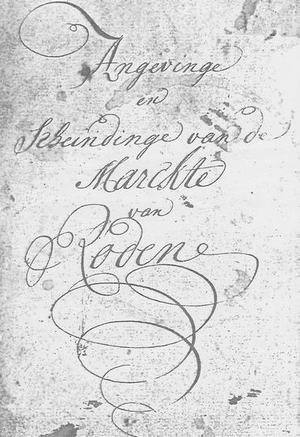 Angevinge
en
Scheindinge van de
Marckte
van
Roden